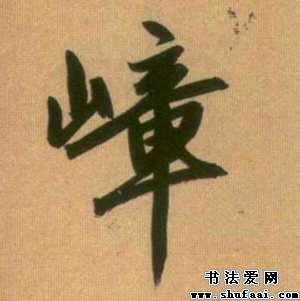 嶂
书法爱网
www.shufaai.com